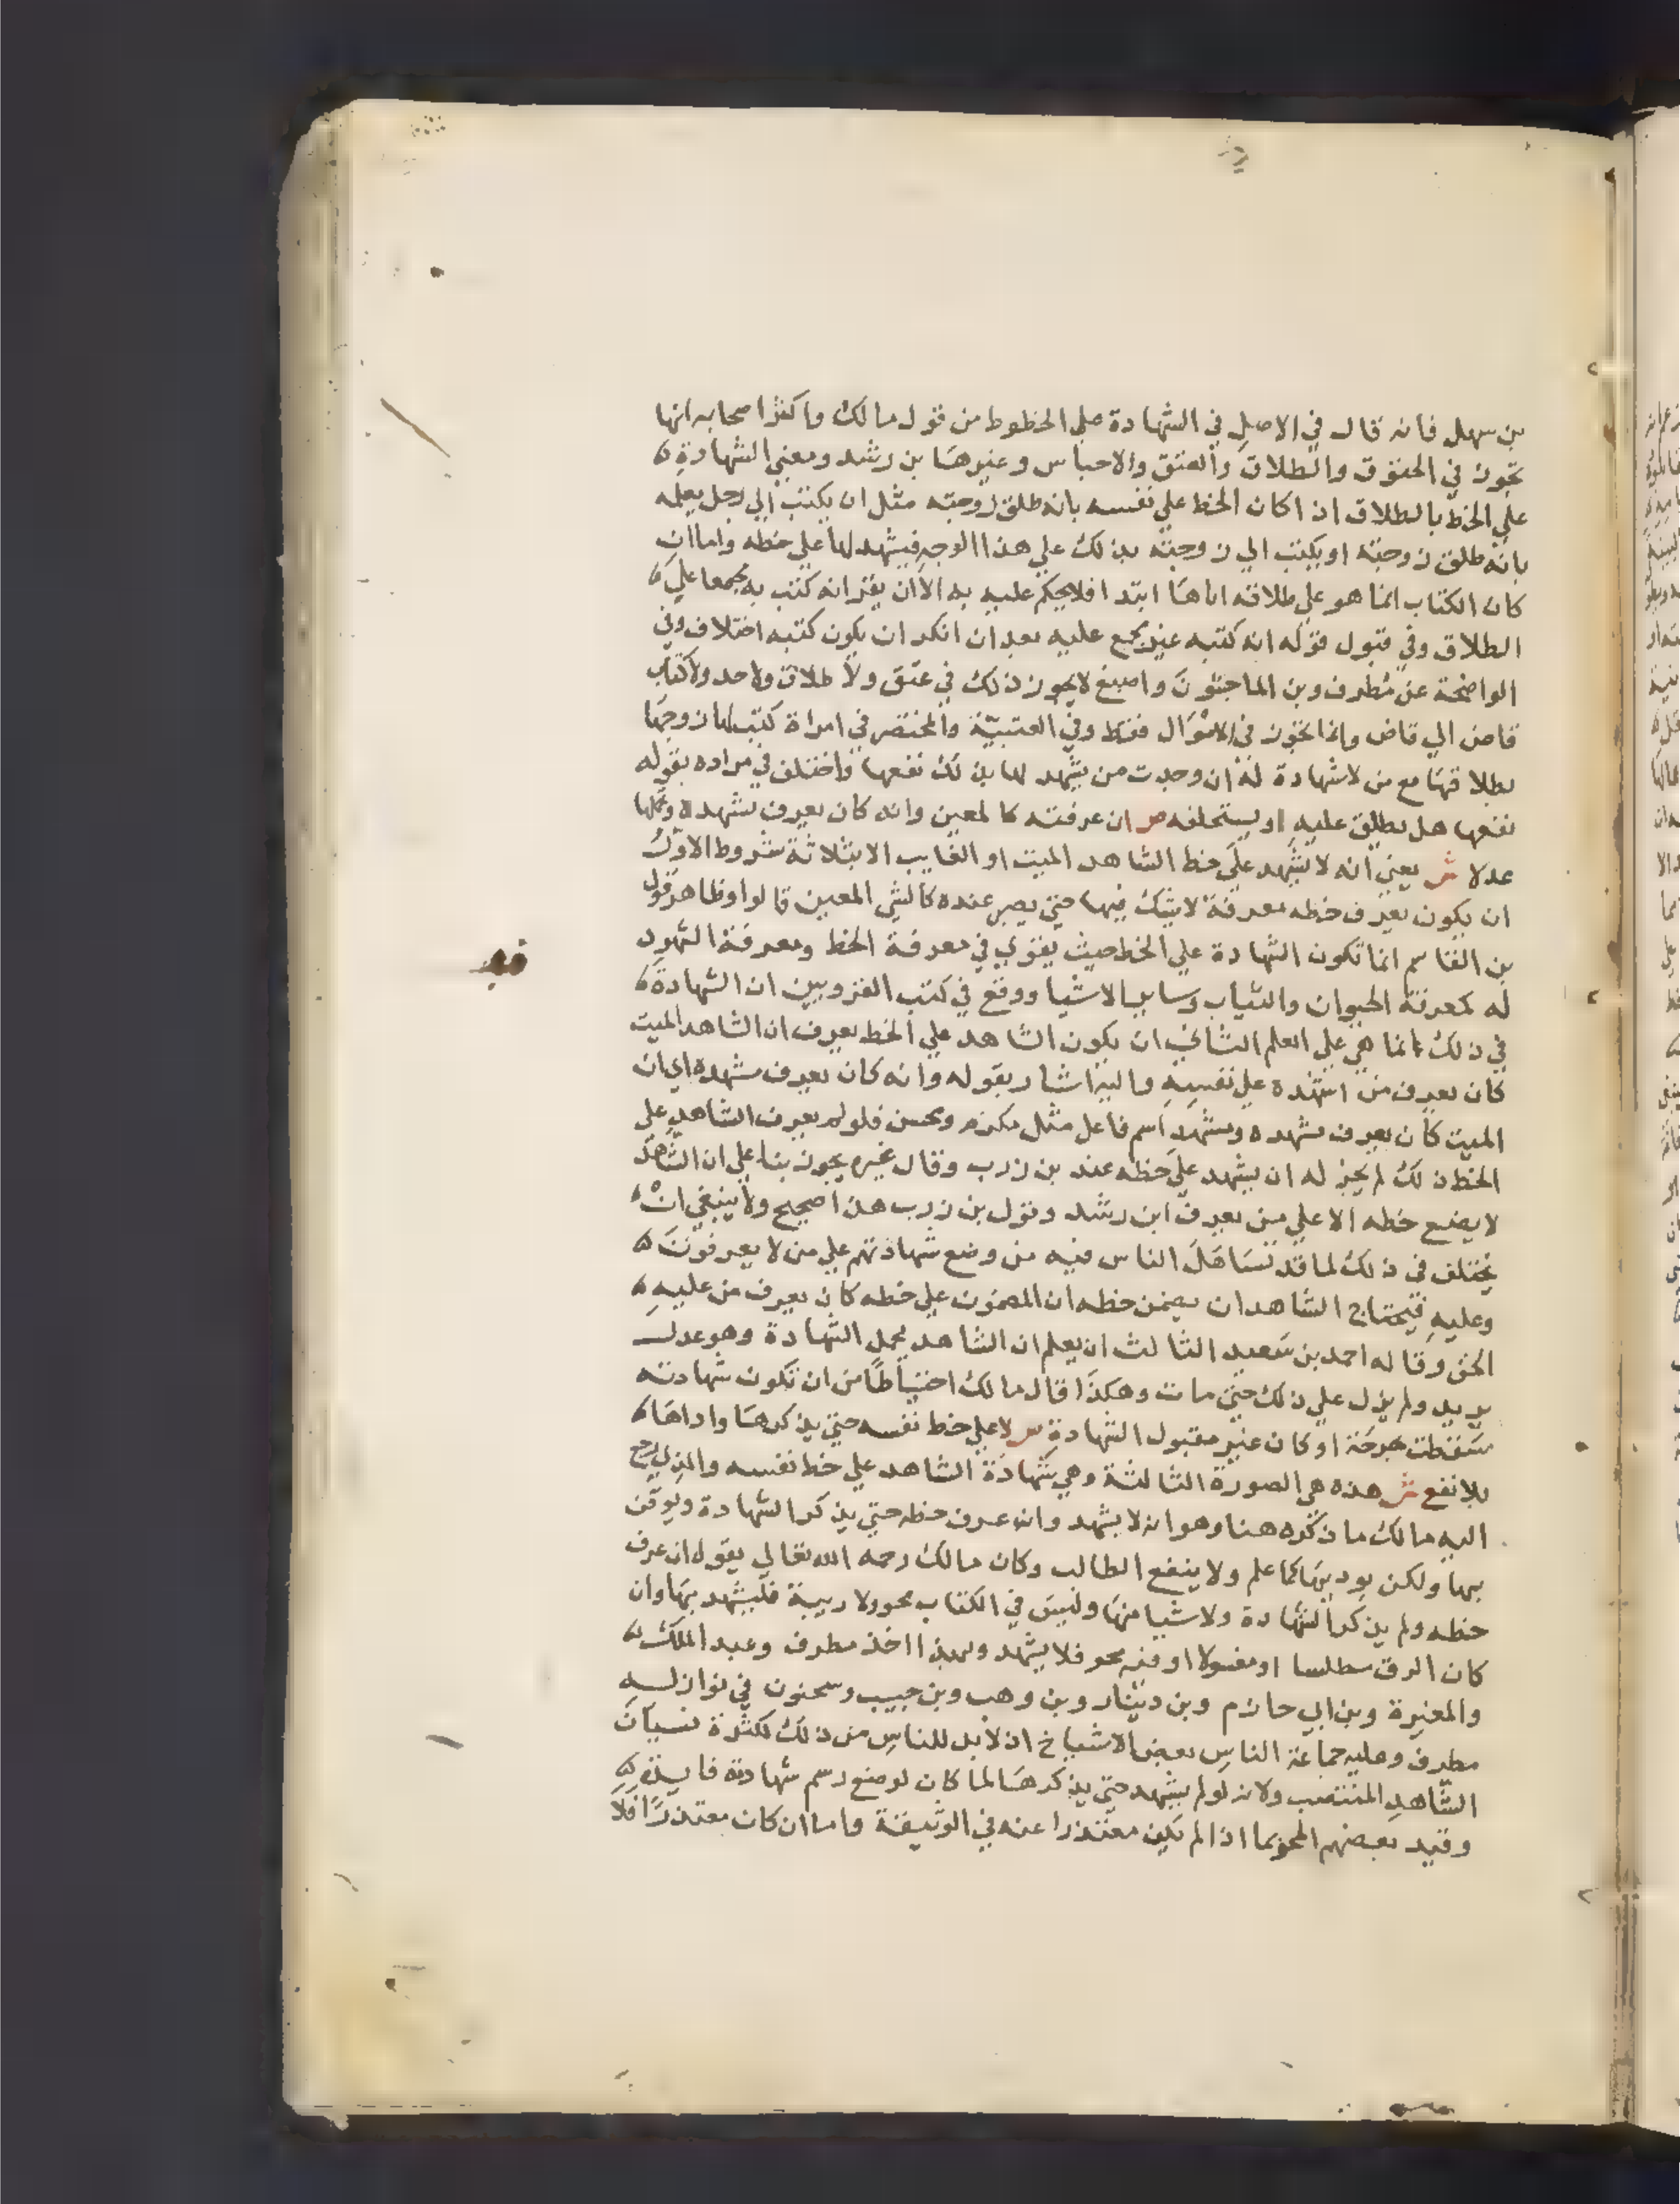 بن سهل فانه قال في الاصل في الشهادة علي الخطوط من قول مالك واكثر اصحابه انها
تجوز في الحقوق والطلاق والعتق والاحباس وغيرها بن رشد ومعني الشهادة
علي الخط بالطلاق اذا كان الخط علي نفسه بانه طلق زوجته مثل ان يكتب الي رجل يعلمه
بانه طلق زوجته او يكتب الي زوجته بذلك علي هذا الوجه فيشهد لها علي خطه واما ان
كان الكتاب انما هو علي طلاقه اياها ابتدا فلا يحكم عليه به الا ان يقر انه كتب به مجمعا علي
الطلاق وفي قبول قوله انه كتبه غير مجمع عليه بعد ان انكر ان يكون كتبه اختلاف وفي
الواضحة عن مطرف وبن الماجشون واصبغ لا يجوز ذلك في عتق ولا طلاق ولا حد ولا كتاب
قاض الي قاض وانما تجوز في الاموال فقط وفي العتبية والمختصر في امراة كتب لها زوجها
بطلاقها مع من لا شهادة له ان وجدت من يشهد لها بذلك نفعها واختلف في مراده بقوله
نفعها هل يطلق عليه او يستحلفه ص ان عرفته كالمعين وانه كان يعرف مشهده وتحملها
عدلا ش يعني انه لا يشهد علي خط الشاهد الميت او الغايب الا بثلاثة شروط الاول
ان يكون يعرف خطه معرفة لا يشك فيها حتي يصير عنده كالشي المعين قالوا وظاهر قول
بن القاسم انما تكون الشهادة علي الخط حيث يقوي في معرفة الخط ومعرفة الشهود
له كمعرفة الحيوان والثياب وساير الاشيا ووقع في كتب القرويين ان الشهادة
في ذلك انما هي علي العلم الثاني ان يكون الشاهد علي الخط يعرف ان الشاهد الميت
كان يعرف من اشهده علي نفسه واليه اشار بقوله وانه كان يعرف مشهده اي ان
الميت كان يعرف مشهده ومشهد اسم فاعل مثل مكرم ومحسن فلو لم يعرف الشاهد علي
الخط ذلك لم يجز له ان يشهد علي خطه عند بن زرب وقال غيره يجوز بنا علي ان الشاهد
لا يضع خطه الا علي من يعرف ابن رشد وقول بن زرب هذا صحيح ولا ينبغي ان
يختلف في ذلك لما قد تساهل الناس فيه من وضع شهادتهم علي من لا يعرفون
وعليه فيحتاج الشاهد ان يضمن خطه ان المضمون علي خطه كان يعرف من عليه
الحق وقاله احمد بن سعيد الثالث ان يعلم ان الشاهد يحمل الشهادة وهو عدل
يريد ولم يزل علي ذلك حتي مات وهكذا قال مالك احتياطا من ان تكون شهادته
سقطت بجرحة او كان غير مقبول الشهادة ص لا علي خط نفسه حتي يذكرها واداها
بلا نفع ش هذه هي الصورة الثالثة وهي شهادة الشاهد علي خط نفسه والذي رجع
اليه مالك ما ذكره هنا وهو انه لا يشهد وان عرف خطه حتي يذكر الشهادة ويوقن
بها ولكن يوديها كما علم ولا ينفع الطالب وكان مالك رحمه الله تعالي يقول ان عرف
خطه ولم يذكر الشهادة ولا شيا منها وليس في الكتاب محو ولا ريبة فليشهد بها وان
كان الرق مطلسا او مغسولا او فيه محو فلا يشهد وبهذا اخذ مطرف وعبد الملك
والمغيرة وبن ابي حازم وبن دينار وبن وهب وبن حبيب وسحنون في نوازله
مطرف وعليه جماعة الناس بعض الاشياخ اذ لا بد للناس من ذلك لكثرة نسيان
الشاهد المنتصب ولانه لو لم يشهد حتي يذكرها لما كان لوضع رسم شهادته فايدة
وقيد بعضهم المحو بما اذا لم يكن معتذرا عنه في الوثيقة واما ان كان معتذرا فلا